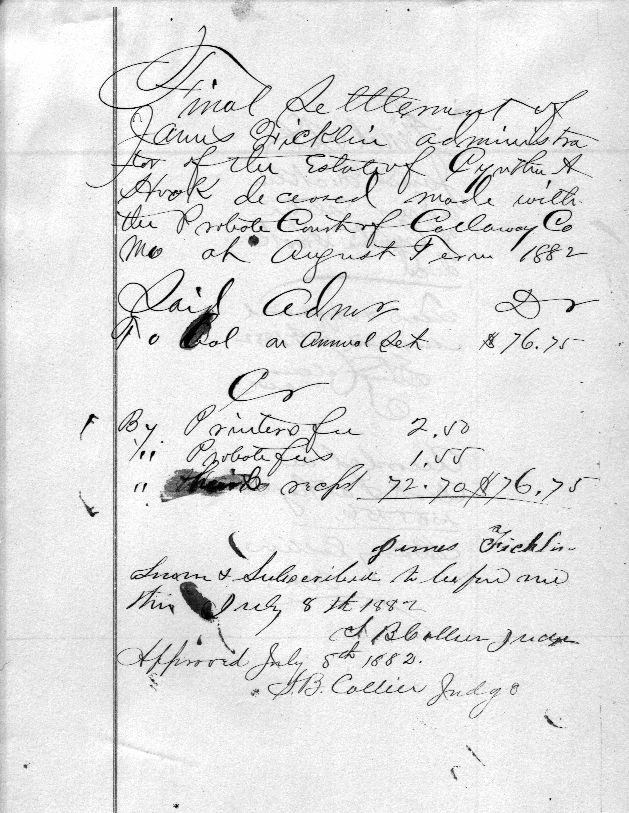 Final Settlement of
James Ficklin administra
tor of the Estate of Cynthia A
Hook deceased made with
the Probate Court of Callaway Co
Mo at August Term 1882
Said Admr Dr
To Bal on Annual Set $76.75
Cr
By Printers fee 2.50
"" Probate fees 1.55
" recpt 72.70 $76.75
James Ficklin
Sworn & Subscribed to before me
this July 8th 1882
J B Collier Judge
Approved July 8th 1882.
J.B. Collier Judge